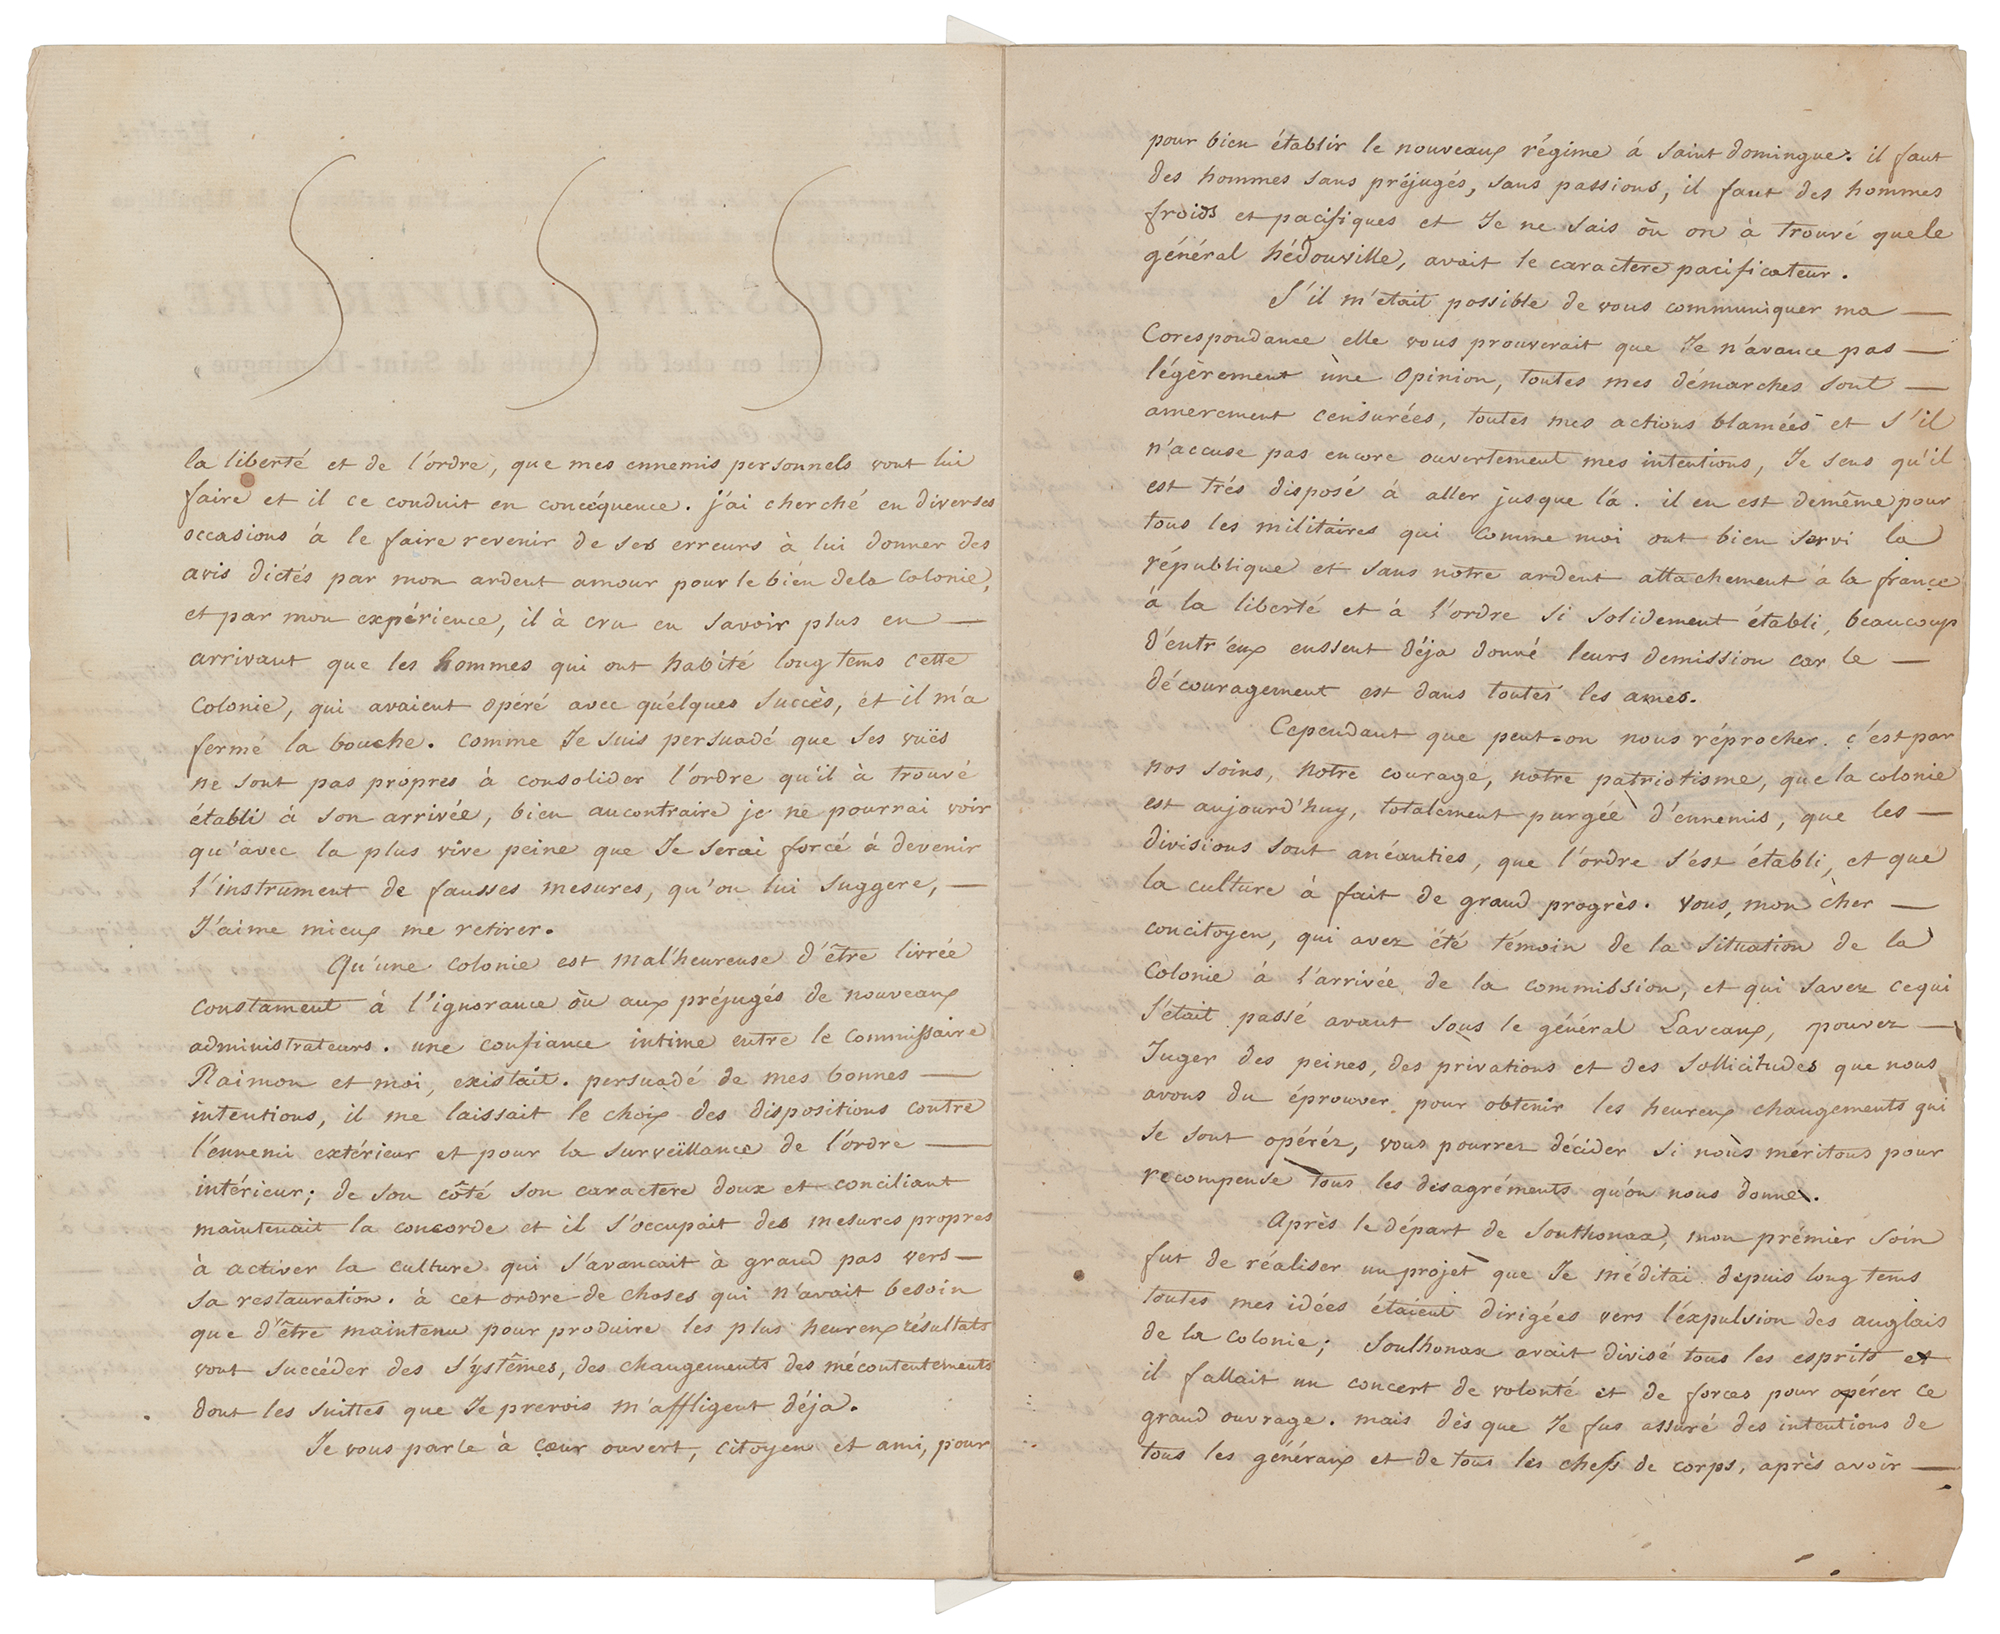 la liberté et de l'ordre, que mes ennemis personnels vont lui
faire et il ce conduit en concéquence. j'ai cherché en diverses
occasions à le faire revenir de ses erreurs à lui donner des
avis dictés par mon ardent amour pour le bién dela Colonie,
et par mon expérience, il à cru en savoir plus en —
arrivant que les hommes qui ont habité long tems cette
Colonie, qui avaient opéré avec quélques succès, et il m'a
fermé la bouche. comme Je suis persuadé que ses vuës
ne sont pas propres à consolider l'ordre qu'il à trouvé
établi à son arrivée, bien aucontraire je ne pourrai voir
qu'avec la plus vive peine que Je serai forcé à devenir
l'instrument de fausses mesures, qu'on lui suggere, —
J'aime mieux me retirer.
Qu'une colonie est mal'heureuse d'être livrée
constament à l'ignorance òu aux préjugés de nouveaux
administrateurs. une confiance intime entre le Commissaire
Raimon et moi, existait. persuadé de mes bonnes —
intentions, il me laissait le choix des dispositions contre
l'ennemi extérieur et pour la surveillance de l'ordre —
intérieur; de son côté son caractere doux et conciliant
maintenait la concorde et il s'occupait des mesures propres
à activer la culture qui s'avancait à grand pas vers —
sa restauration. à cet ordre de choses qui n'avait besoin
que d'être maintenu pour produire les plus heureux résultats
vont succéder des systêmes, des changements des mécontentements
dont les suittes que Je prevois m'affligent déja.
Je vous parle à cœur ouvert, citoyen et ami, pour
pour bien établir le nouveaux régime à saint domingue. il faut
des hommes sans préjugés, sans passions, il faut des hommes
froids et pacifiques et Je ne sais òu on à trouvé quele
général hédouville, avait le caractere pacificateur.
S'il m'était possible de vous communiquer ma —
Corespondance elle vous prouverait que Je n'avance pas —
légèrement ùne opinion, toutes mes démarches sont —
amèrement censurées, toutes mes actions blamées et s'il
n'accuse pas encore ouvertement mes intentions, Je sens qu'il
est trés disposé à aller jusque là. il en est demême pour
tous les militaires qui comme moi ont bien servi la
république et sans notre ardent attachement à la france
à la liberté et à l'ordre si solidement établi, beaucoup
d'entr'éux eussent déja donné leurs demission car le —
découragement est dans toutes les ames.
Cependant que peut-on nous réprocher. c'est par
nos soins, notre courage, notre patriotisme, que la colonie
est aujourd'huy, totalement purgée d'ennemis, que les —
divisions sont anéanties, que l'ordre s'est établi, et que
la culture à fait de grand progrès. Vous, mon cher —
concitoyen, qui avez été témoin de la situation de la
Colonie à l'arrivée de la commission, et qui savez cequi
s'était passé avant sous le général Laveaux, pouvez —
Juger des peines, des privations et des sollicitudes que nous
avons du éprouver pour obtenir les heureux changements qui
se sont opéréz, vous pourrez décider si noùs méritons pour
recompense tous les désagréments qu'on nous donne.
Après le départ de Sonthonax, mon prémier soin
fut de réaliser un projet que Je méditai depuis long tems
toutes mes idées étaient dirigées vers l'expulsion des anglais
de la colonie; Sonthonax avait divisé tous les esprits et
il fallait un concert de volonté et de forces pour opérer ce
grand ouvrage. mais dès que Je fus assuré des intentions de
tous les généraux et de tous les chefs de corps, après avoir —